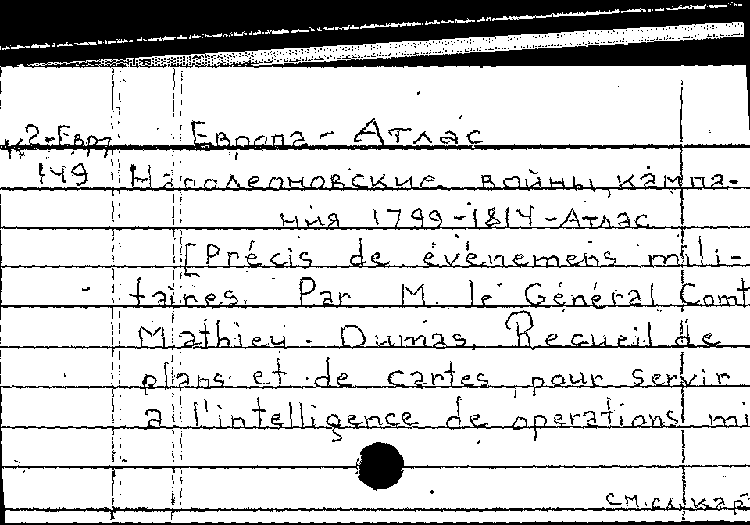 К 2-Евр
149
Европа - Атлас
Наполеоновские войны, кампа-
ния 1799-1814 - Атлас
[Précis de évènemens mili-
taines. Par M. le Général Comt
Mathieu - Dumas. Recueil de
plans et de cartes pour servir
a l'intelligence de operations mi
см.сл.кар